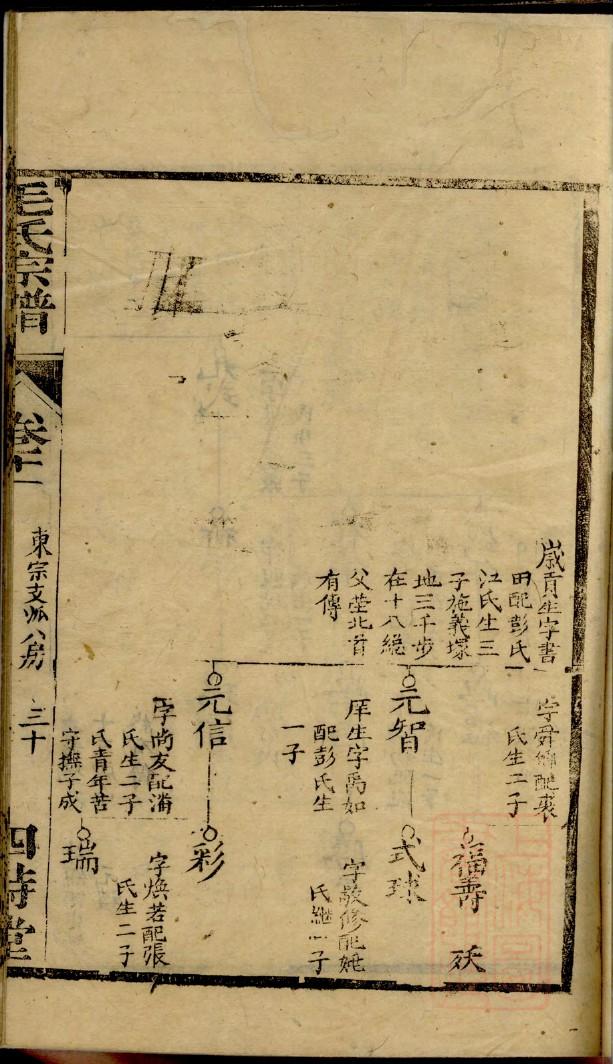 歲貢生字書
田配彭氏
江氏生三
子施義塚
地三千步
在十八總
父塋北首
有傳
字舜卿配裘
氏生二子
福壽 殀
元智
庠生字禹如
配彭氏生
一子
式球
字敬修配姚
氏繼一子
元信
字尚友配湑
氏生二子
氏青年苦
守撫子成
彩
字煥若配張
氏生二子
瑞
毛氏宗譜
卷十二
東宗支派八房
三十
四詩堂